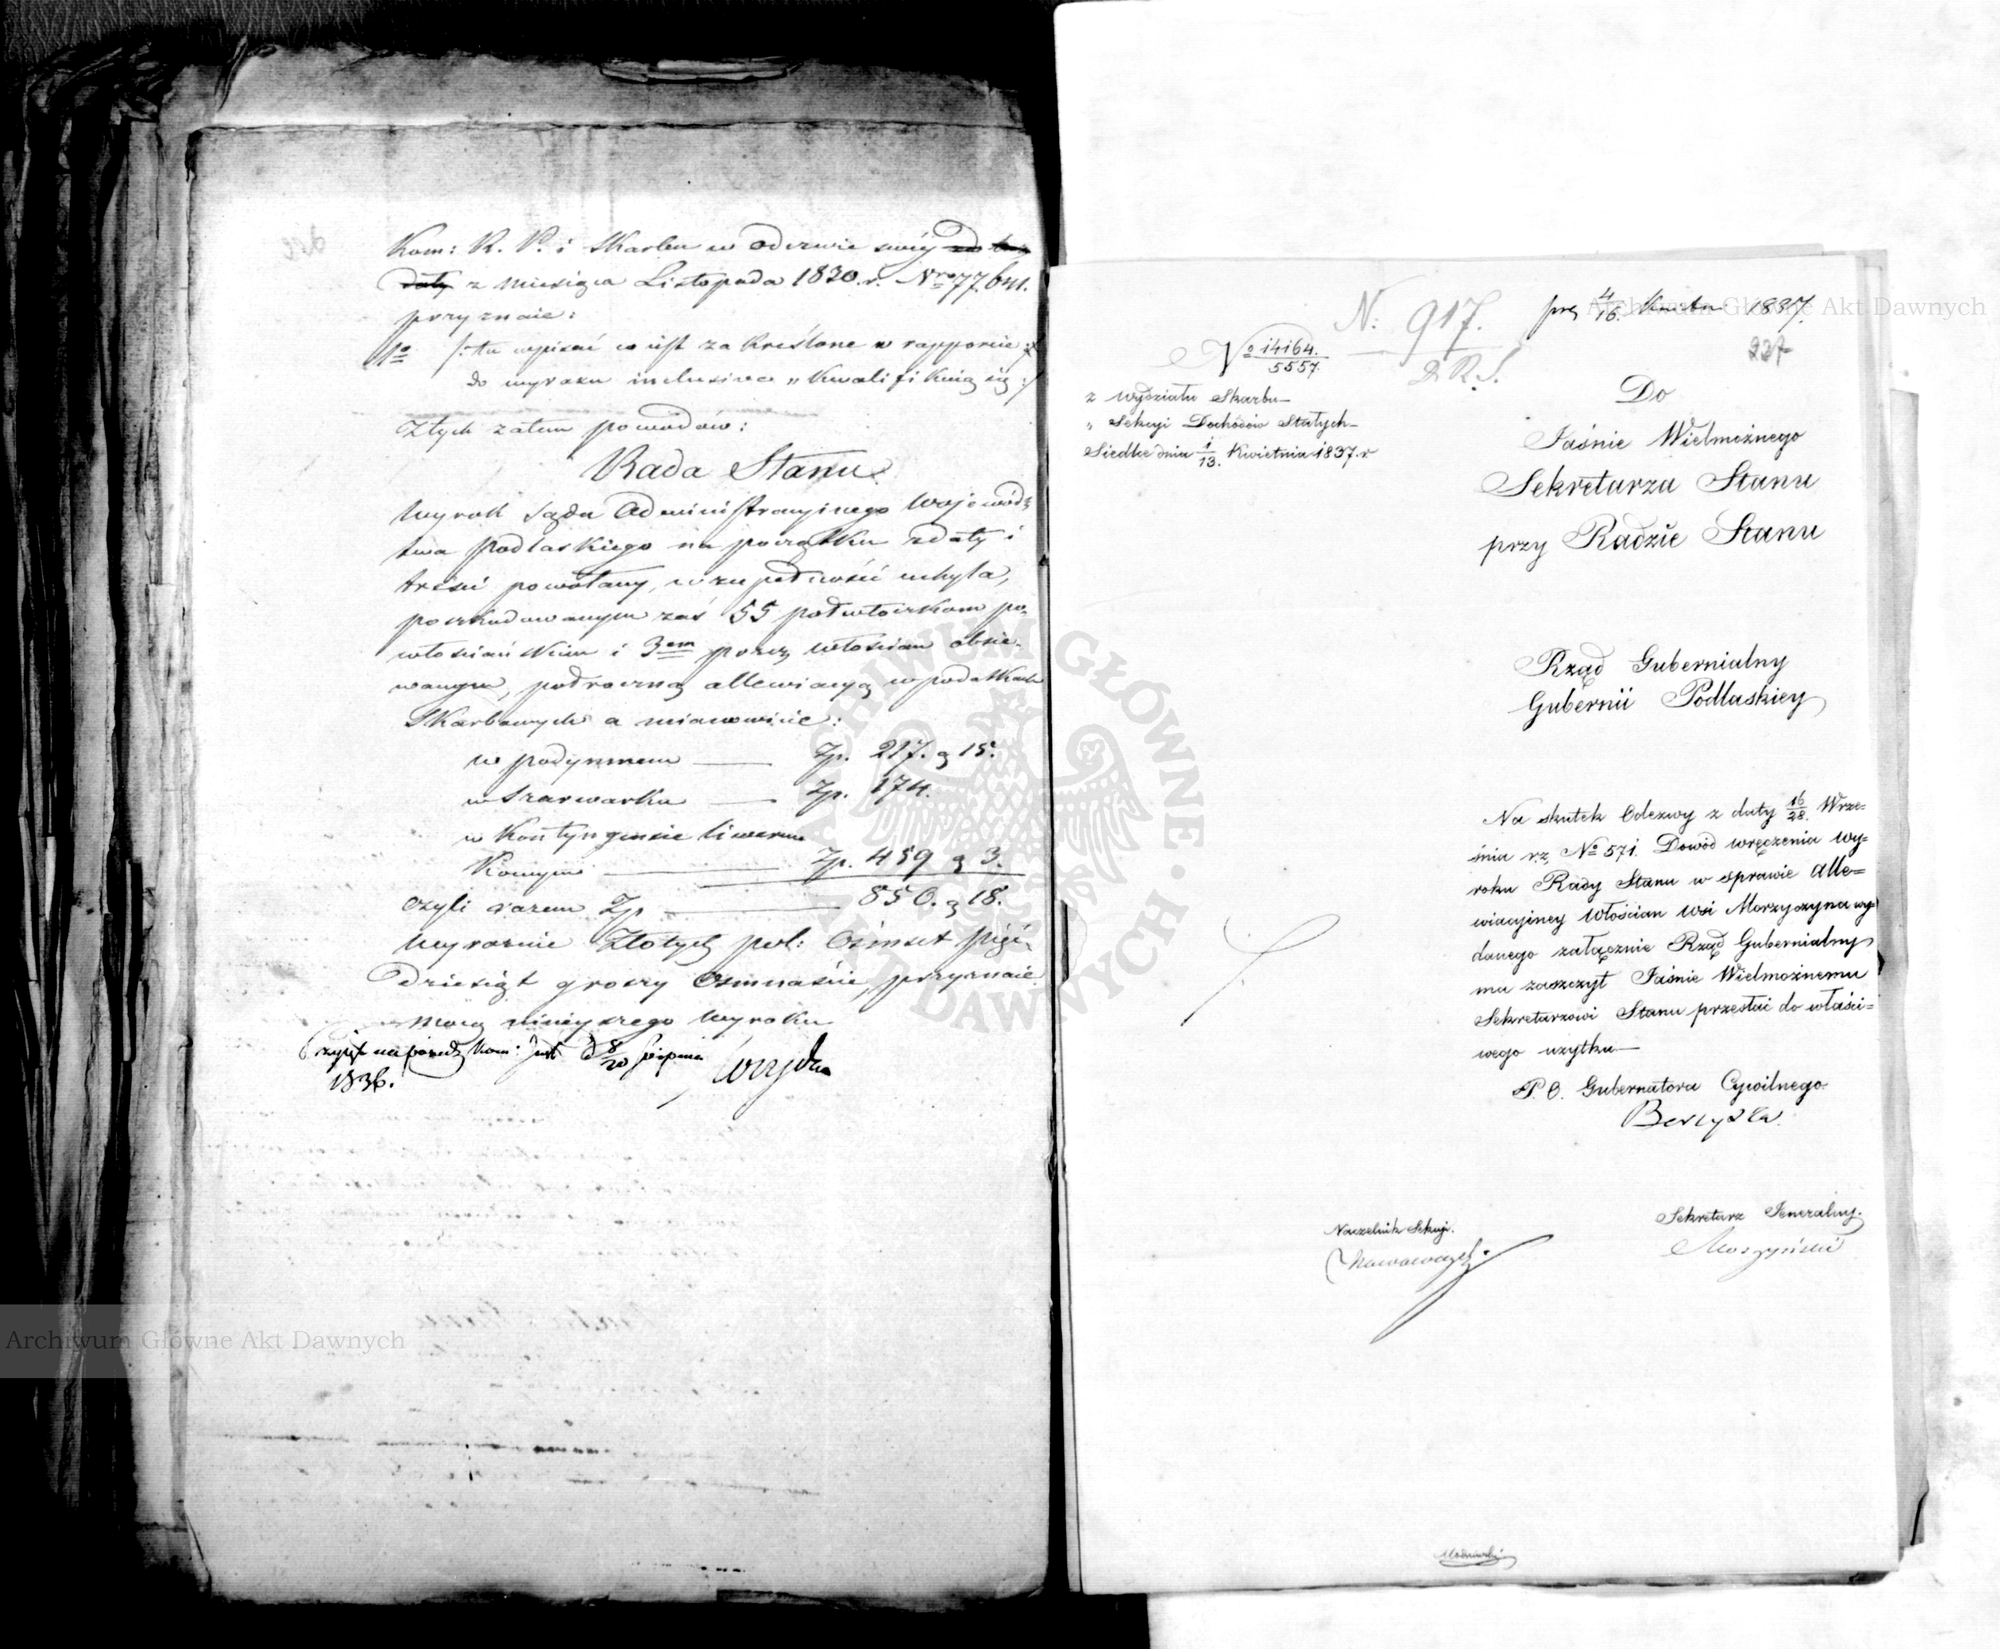 Kom: R. P. i Skarbu w Odezwie swéy
daty z miesiąca Listopada 1830. r. Nro 77,641.
przyznaie:
1o /: tu wpisać co iest zakreślone w rapporcie
do wyrazu inclusive „ kwalifikuią się :/
Ztych zatem powodów:
Rada Stanu
Wyrok Sądu Administracyinego Wojewódz
twa Podlaskiego na początku zdaty i
treści powołany, w zupełności uchyla,
poszkodowanym zaś 55 półwłóczkom po-
włościańskim i 3em przez włościan obsie-
wanym, półroczną allewiacyą w podatkach
Skarbowych a mianowicie:
w podymnem — Zp. 217. g 15.
w Szarwarku — Zp. 174.
w Kontyngensie liweran
Zp. 459 g 3.
czyli razem Zp — 850. g 18.
wyraznie Złotych pol: Ośmset pięć-
dziesiąt groszy Osmnaście, przyznaie
mocą ninieyszego Wyroku
Czyt: na posiedz Kom: Inst d 8/20 Sierpnia
1836.
N: 917.
D. R. S.
prez 4/16. 1837.
237
No 14164./5557.
z Wydziału Skarbu
„ Sekcyi Dochodów Stałych
Siedlce dnia 1/13. Kwietnia 1837. r
Do
Jaśnie Wielmożnego
Sekretarza Stanu
przy Radzie Stanu
Rząd Gubernialny
Gubernii Podlaskiey
Na skutek Odezwy z daty 16/28. Wrze-
śnia r. z. No 571. Dowód wręczenia wy-
roku Rady Stanu w sprawie alle-
wiacyiney Włościan wsi Morzyczyna wy
danego załącznie Rząd Gubernialny
ma zaszczyt Jaśnie Wielmożnemu
Sekretarzowi Stanu przesłać do właści-
wego użytku
P. O. Gubernatora Cywilnego
Naczelnik Sekcyi.
Sekretarz Jeneralny.
Moszyński
Archiwum Główne Akt Dawnych
Archiwum Główne Akt Dawnych
ARCHIWUM GŁÓWNE AKT DAWNYCH